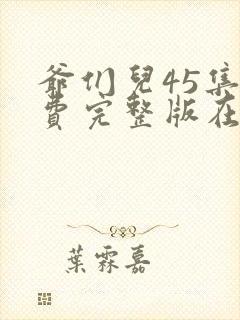 爺们兒45集
費完整版在
葉霖嘉